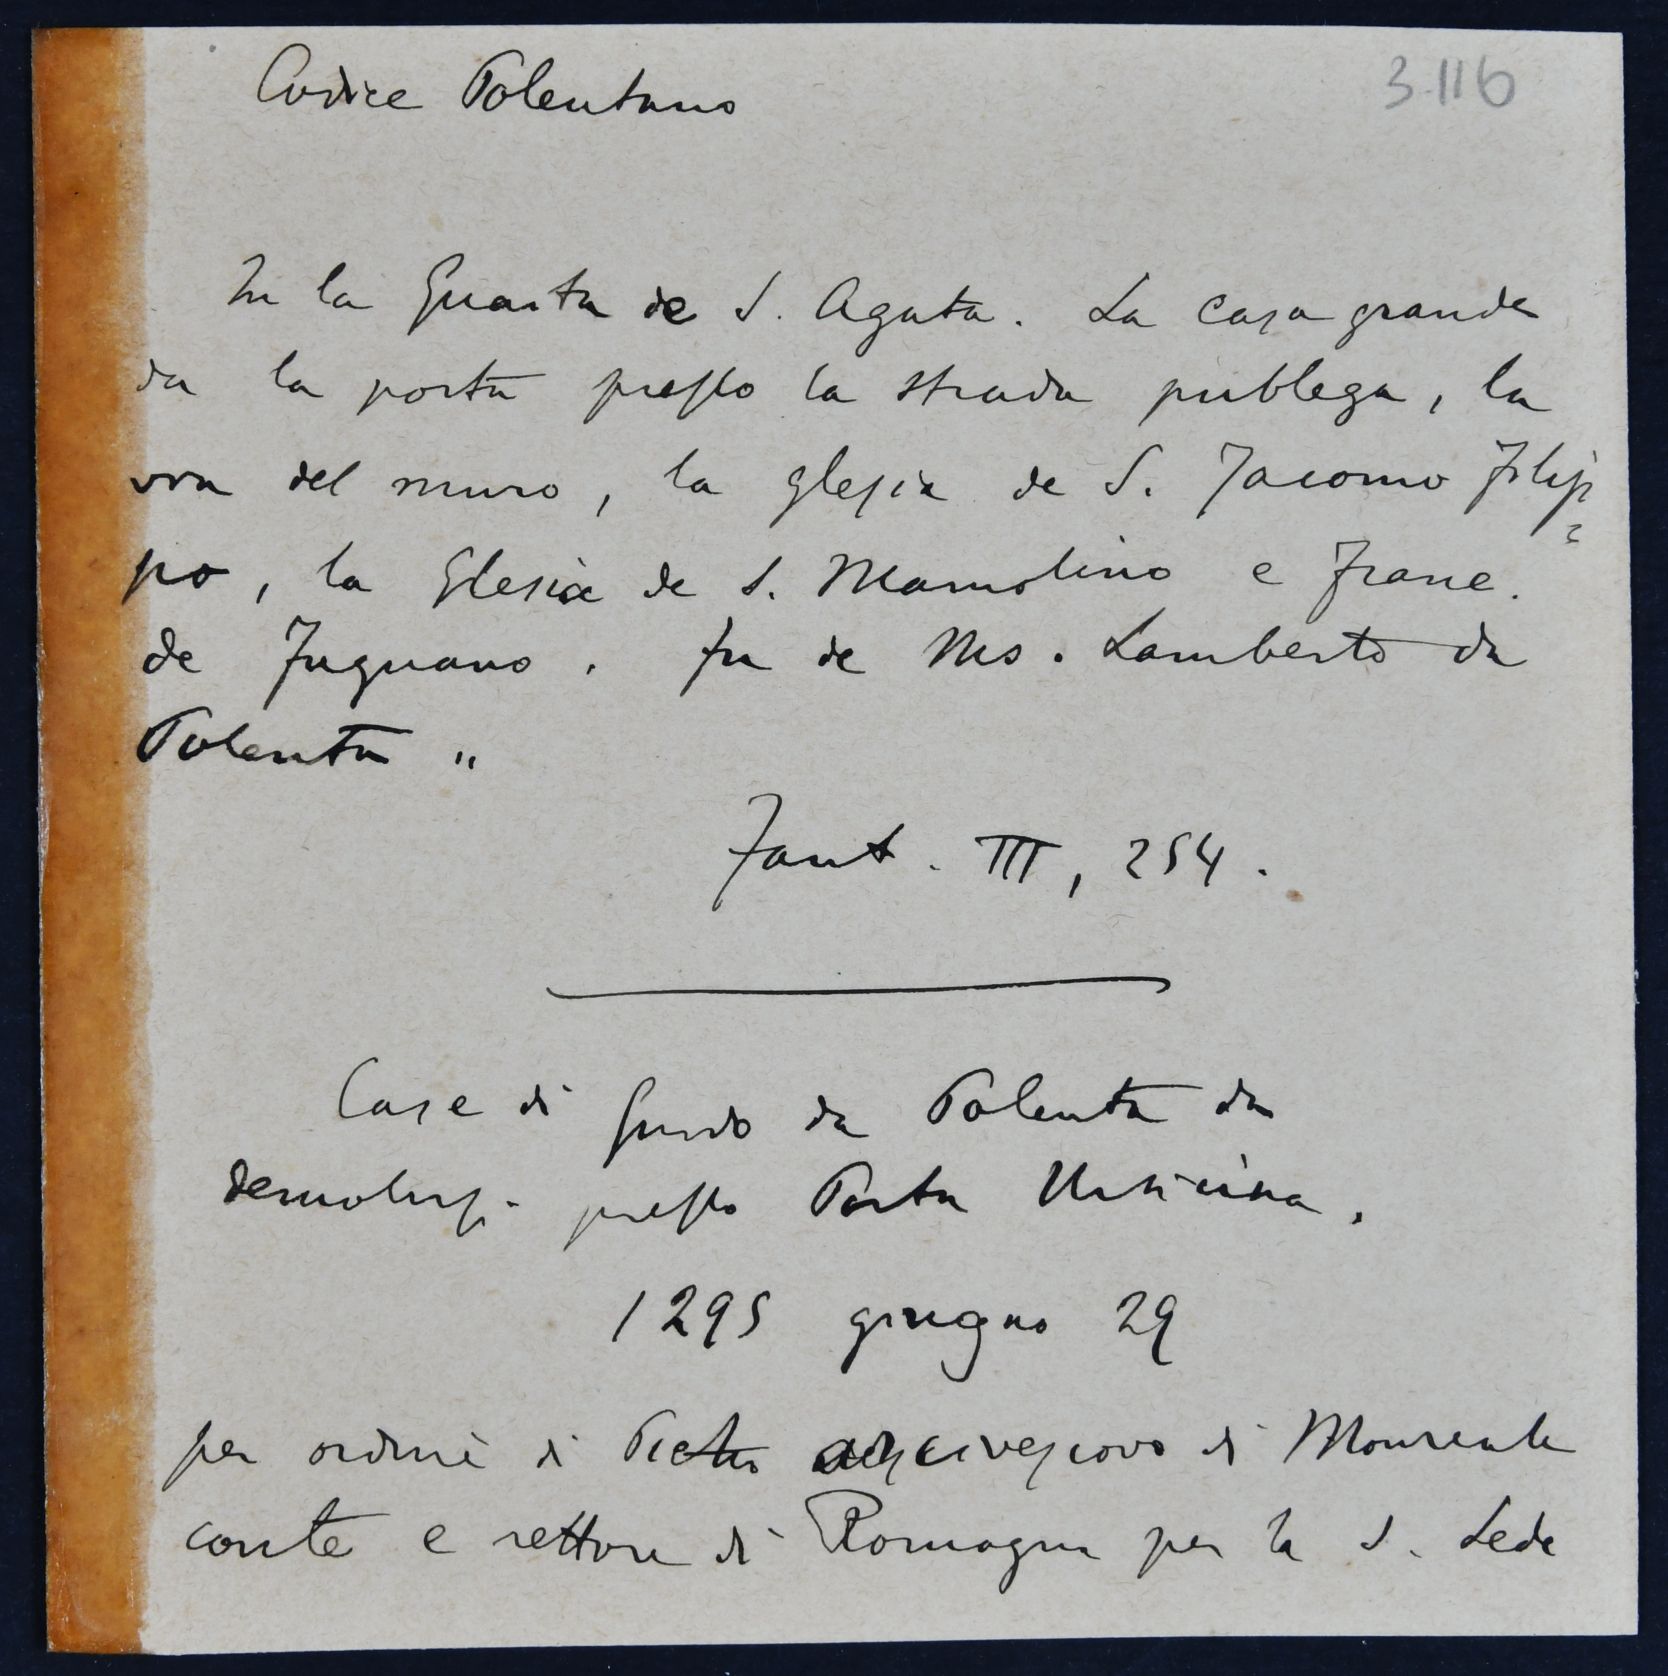 Codice Polentano
3.116
In la Guaita de S. Agata. La casa grande
da la porta presso la strada publega, la
via del muro, la glesia de S. Jacomo Filip=
po, la Glesia de S. Mamolino e Franc.
de Fugnano. fu de Ms. Lamberto da
Polenta "
Fant. III, 254.
Case di Guido da Polenta da
demolirsi presso Porta Ursicina.
1295 giugno 29
per ordine di Pietro arcivescovo di Monreale
conte e rettore di Romagna per la S. Sede